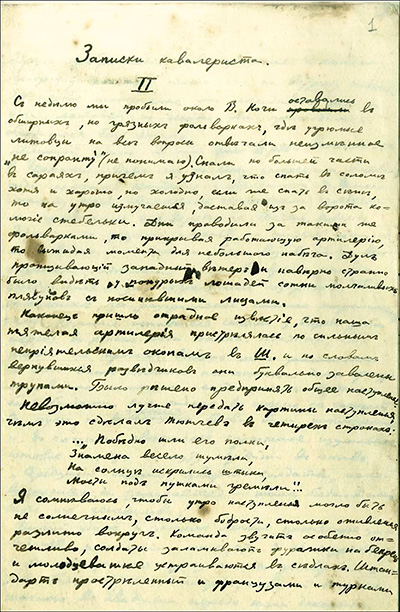 1
Записки кавалериста.
II
Съ недѣлю мы пробыли около В. оставались въ
обширныхъ, но грязныхъ фольваркахъ, гдѣ угрюмые
литовцы на всѣ вопросы отвѣчали неизмѣнное
„не сопранту" (не понимаю). Спали по большей части
въ сараяхъ, причемъ я узналъ, что спать въ соломѣ
хотя и хорошо, но холодно, если же спать въ сѣнѣ,
то на утро измучаешься, доставая изъ за ворота ко-
лючіе стебельки. Дни проводили за такими же
фольварками, то прикрывая работающую артилерію,
то выжидая момента для небольшого набѣга. Дулъ
пронизывающій западный вѣтеръ и навѣрно странно
было видѣть у понурыхъ лошадей сотни молчаливыхъ
плясуновъ съ посинѣвшими лицами.
Наконецъ пришло отрадное извѣстіе, что наша
тяжелая артилерія пристрѣлялась по сильнымъ
непріятельскимъ окопамъ въ Ш. и по словамъ
вернувшихся развѣдчиковъ они буквально завалены
трупами. Было рѣшено предпринять общее наступленіе
Невозможно лучше передать картины наступленія,
чѣмъ это сдѣлалъ Тютчевъ въ четырехъ строкахъ:
... „Побѣдно шли его полки,
Знамена весело шумѣли,
На солнцѣ искрились штыки,
Мосты подъ пушками гремѣли"...
Я сомнѣваюсь, чтобы утро наступленія могло быть
не солнечнымъ, столько бодрости, столько оживленія
разлито вокругъ. Команда звучитъ особенно от-
четливо, солдаты заламываютъ фуражки на
и молодцеватѣе устраиваются въ сѣдлахъ. Штан-
дартъ прострѣленный и французами и турками